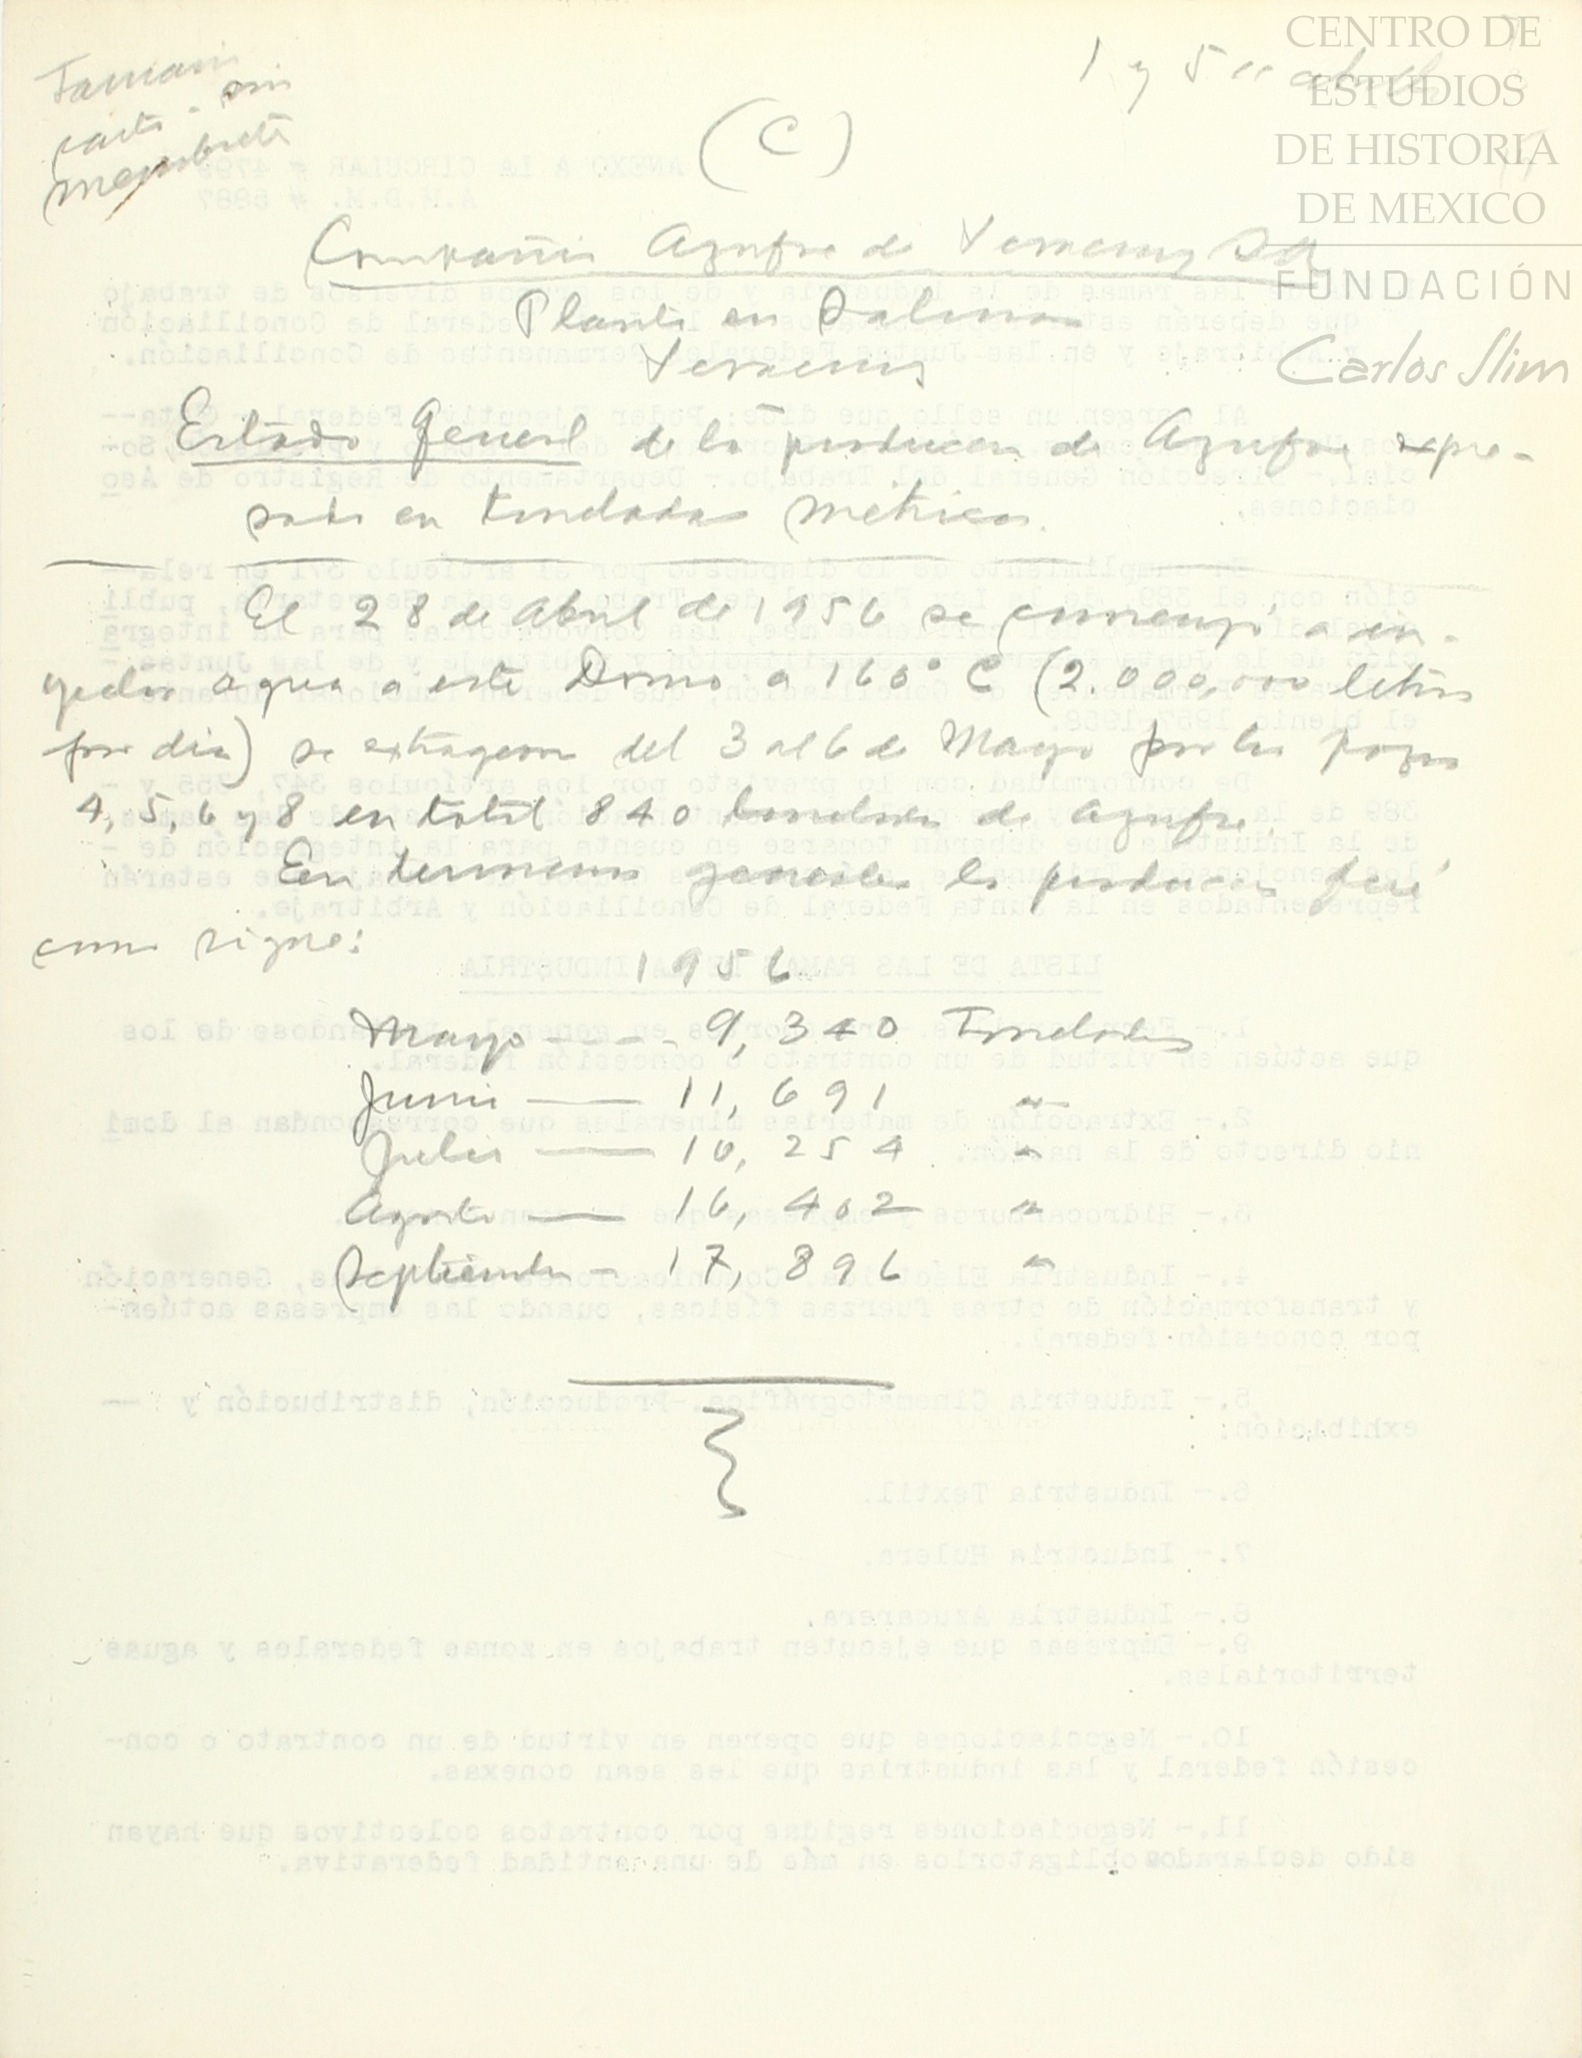 Tamaño
carta - sin
membrete
1 y 5 cc
CENTRO DE
ESTUDIOS
DE HISTORIA
DE MEXICO
FUNDACIÓN
Carlos Slim
(C)
Compañia Azufre de Veracruz SA
Planta en Salinas
Veracruz
Estado General de la produccion de Azufre, expre-
sado en toneladas métricas.
El 28 de Abril de 1956 se comenzó a in-
yectar agua a este Domo a 160° C (2.000,000 litros
por dia) se extrageron del 3 al 6 de Mayo por los pozos
4, 5, 6 y 8 en total 840 toneladas de azufre.
En terminos generales la produccion fué
como sigue:
1956
Mayo - - - - 9,340 Toneladas
Junio — 11,691 "
Julio — 10,254 "
Agosto — 16,402 "
Septiembre - 17,896 "